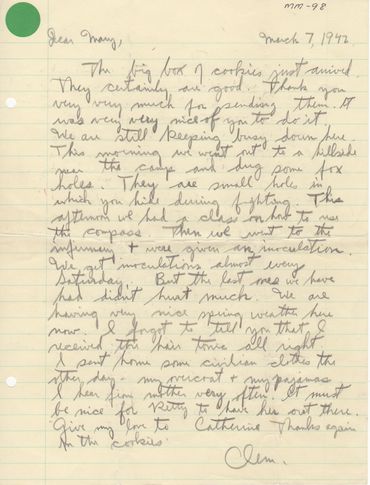 MM-98
Dear Mary,
March 7, 1942
The big box of cookies just arrived.
They certainly are good. Thank you
very very much for sending them. It
was very very nice of you to do it.
We are still keeping busy down here.
This morning we went out to a hillside
near the camp and dug some fox
holes. They are small holes in
which you hide during fighting. This
afternoon we had a class on how to use
the compass. Then we went to the
infirmary + were given an inoculation.
We get inoculations almost every
Saturday. But the last ones we have
had didn't hurt much. We are
having very nice spring weather here
now. I forgot to tell you that I
received the hair tonic all right
I sent home some civilian clothes the
other day - my overcoat + my pajamas
I hear from mother very often. It must
be nice for Betty to have her out there.
Give my love to Catherine Thanks again
for the cookies
Clem.